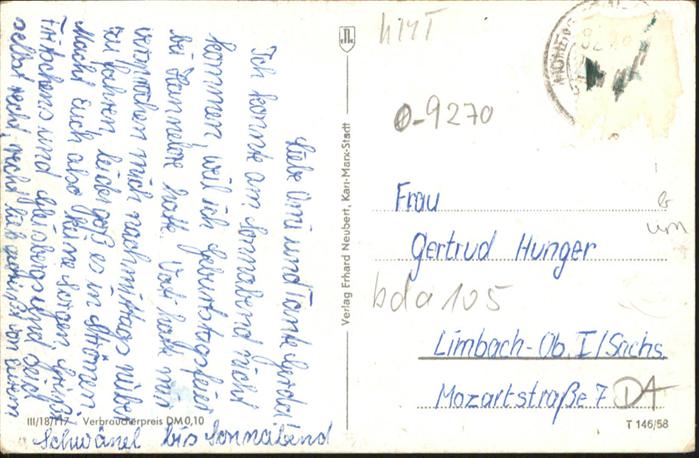 Liebe Omi und Tante Gerda!
Ich konnte am Sonnabend nicht
kommen, weil ich Geburtstagsfeier
bei Hannelore hatte. Vati hatte mir
versprochen mich nachmittags rüber
zu fahren, leider goß es in Strömen
Macht Euch also keine Sorgen. Grüßt
und seid
selbst recht, recht lieb gegrüßt von Eurem
Schwänel bis Sonnabend
III/18/117 Verbraucherpreis DM 0,10
Verlag Erhard Neubert, Karl-Marx-Stadt
h14T
HOHE
0-9270
Frau
Gertrud Hunger
bda105
Limbach-Ob. I/Sachs.
Mozartstraße 7 DA
T 146/58